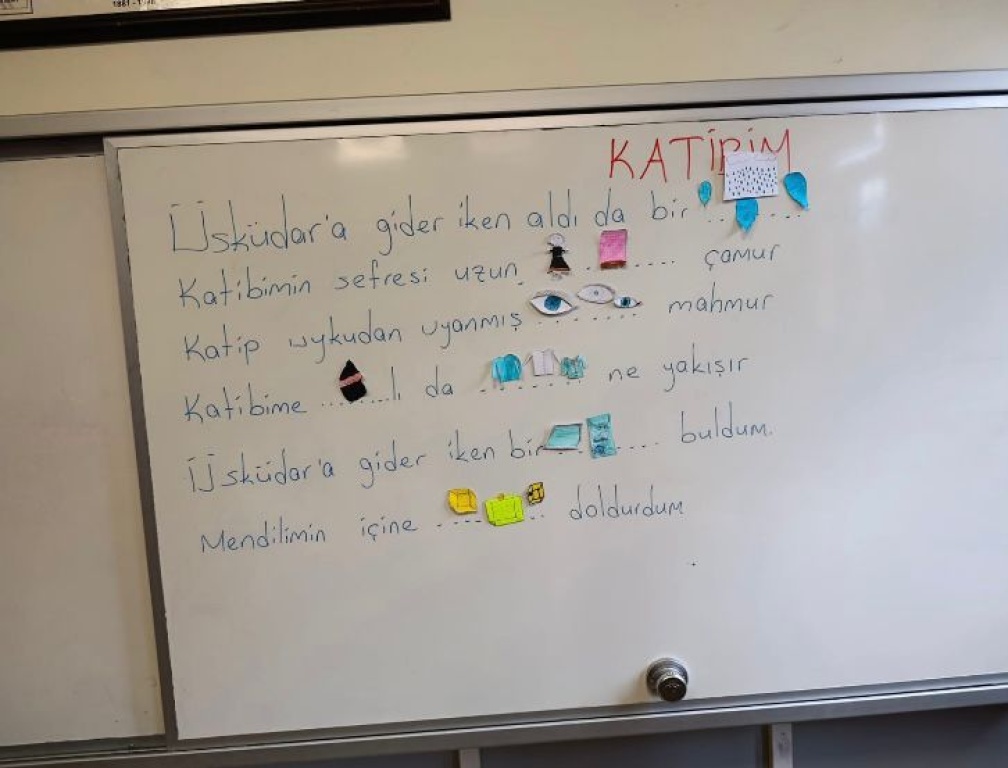 KATİBİM
Üsküdar'a gider iken aldı da bir . . . . .
Katibimin sefresi uzun . . . . . . çamur
Katip uykudan uyanmış . . . . . . . mahmur
Katibime . . . . . . lı da . . . . . . . ne yakışır
Üsküdar'a gider iken bir . . . . . . buldum.
Mendilimin içine . . . . . . . doldurdum